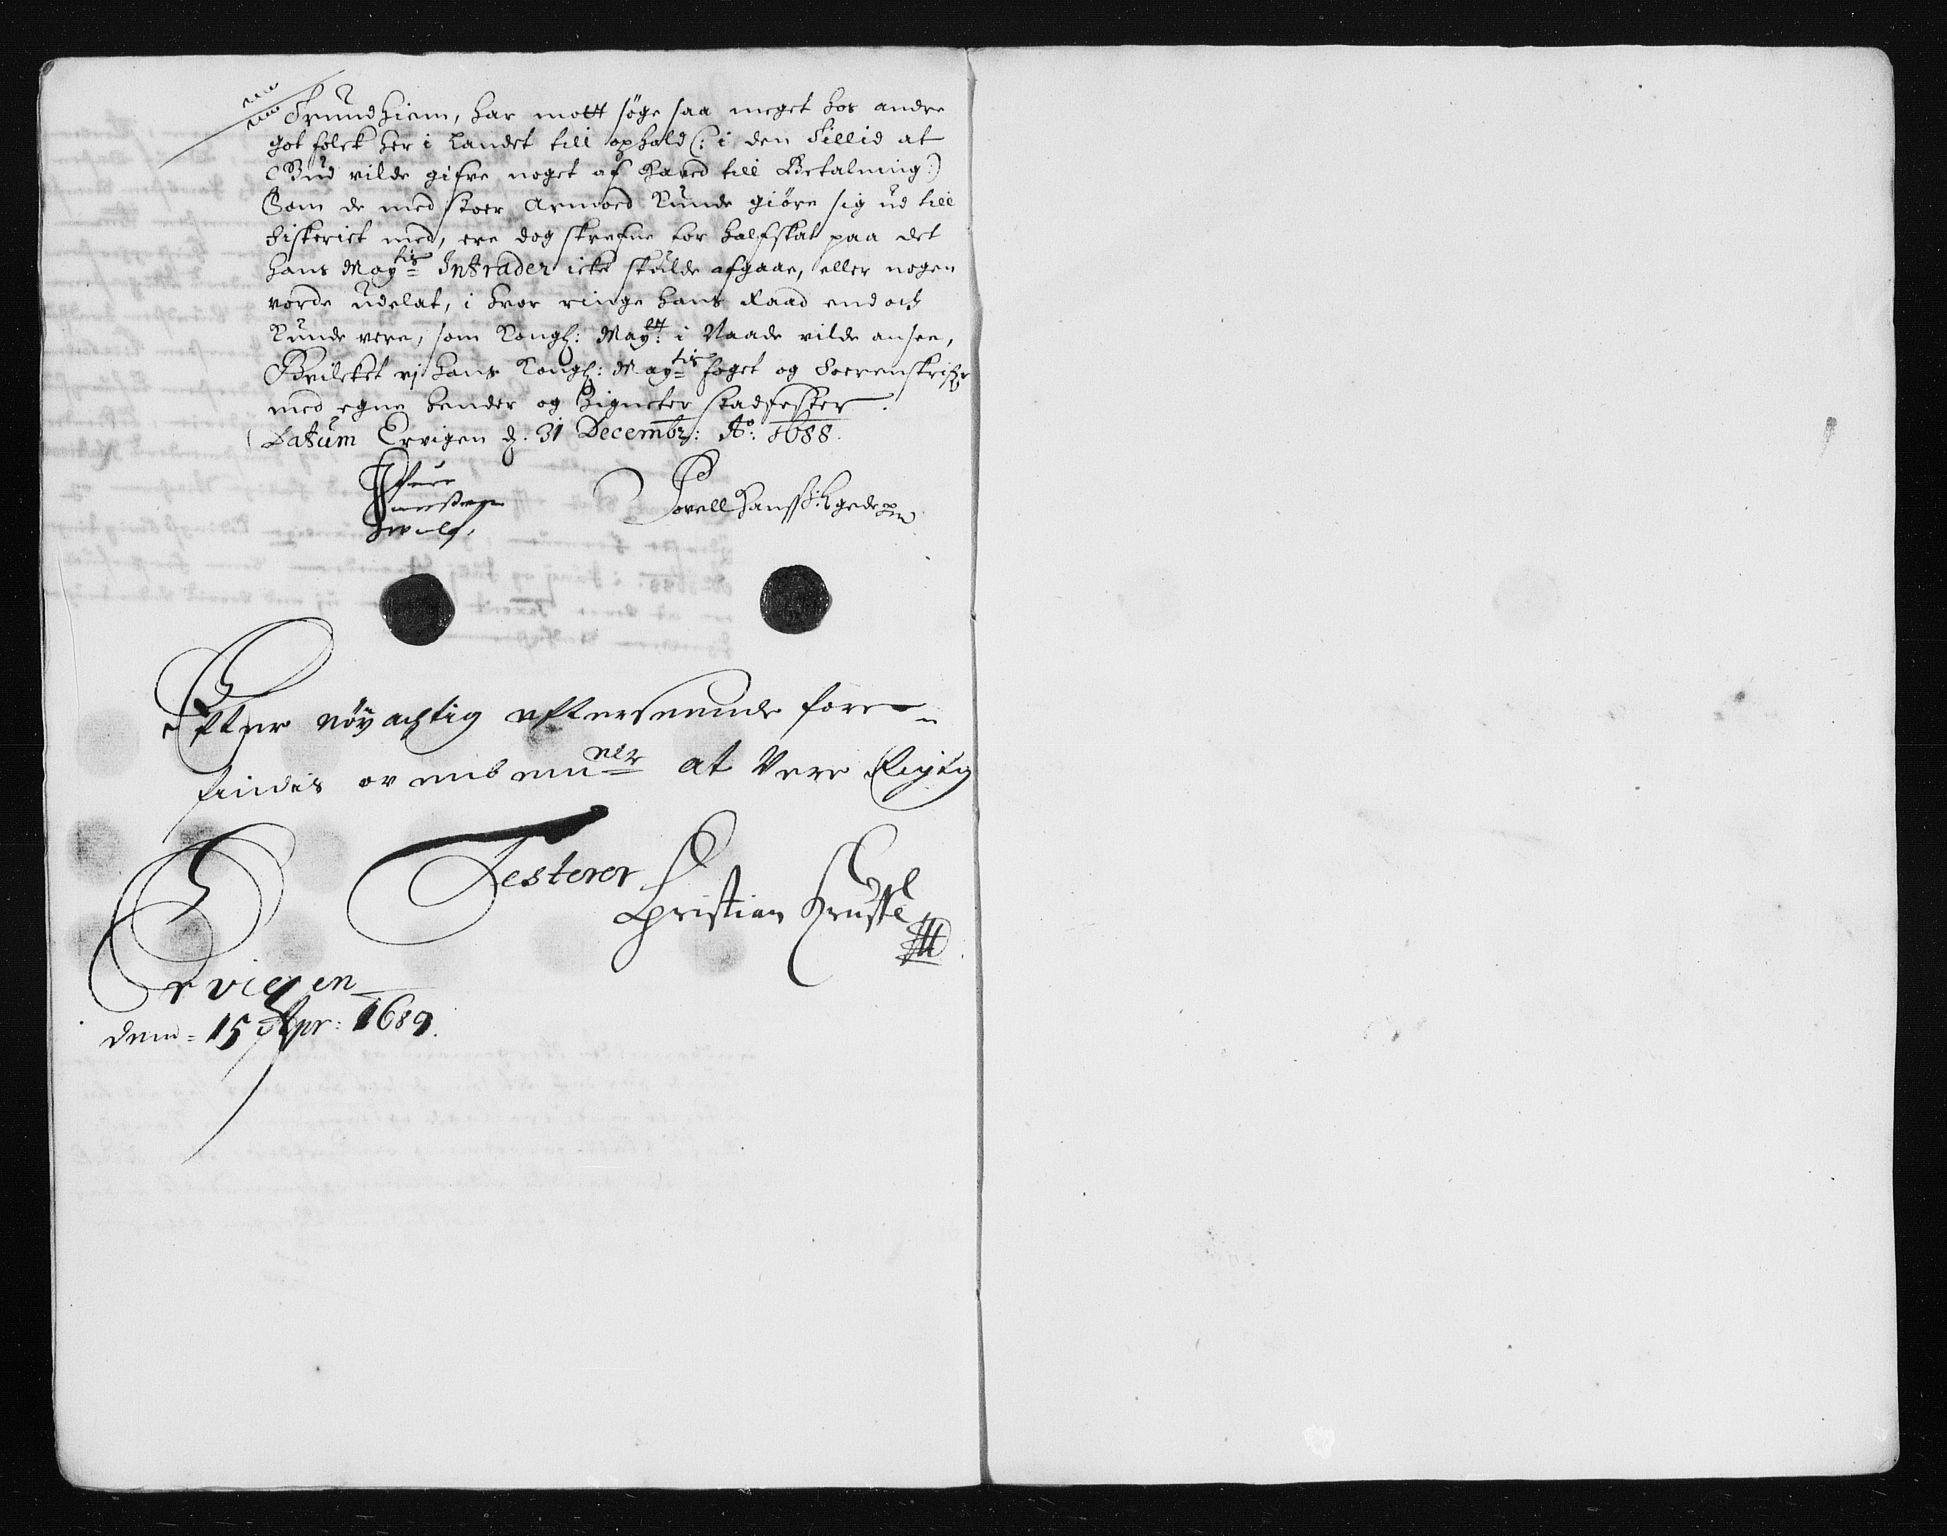 Trundhiem, har mott søge saa meget hos andre
got folck her i Landet till ophold (: i den Tillid at
Gud vilde gifve noget af Haved till Betalning :)
Som de med stoer Armoed Kunde giøre sig ud till
fiskeriet med, ere dog skrefne for halfskat paa det
hans Maytis Intrader icke skulde afgaae, eller nogen
vorde udelat, i hvor ringe hans Raad end och
Kunde vere, som Kongl: Mayett i Naade vilde ansee,
Hvilcket vj hans Kongl: Maytis foget og Soerenskrifr
med egne hender og Zigneter stadfester.
Datum Ervigen d: 31 Decembr: Ao: 1688.
Povell Hanss:
Efter nöyachtig efterseende fore=
findis ovenbemelr at Vere Rigtig
Testerer
Christian
Ervigen
denn= 15 Apr: 1689.